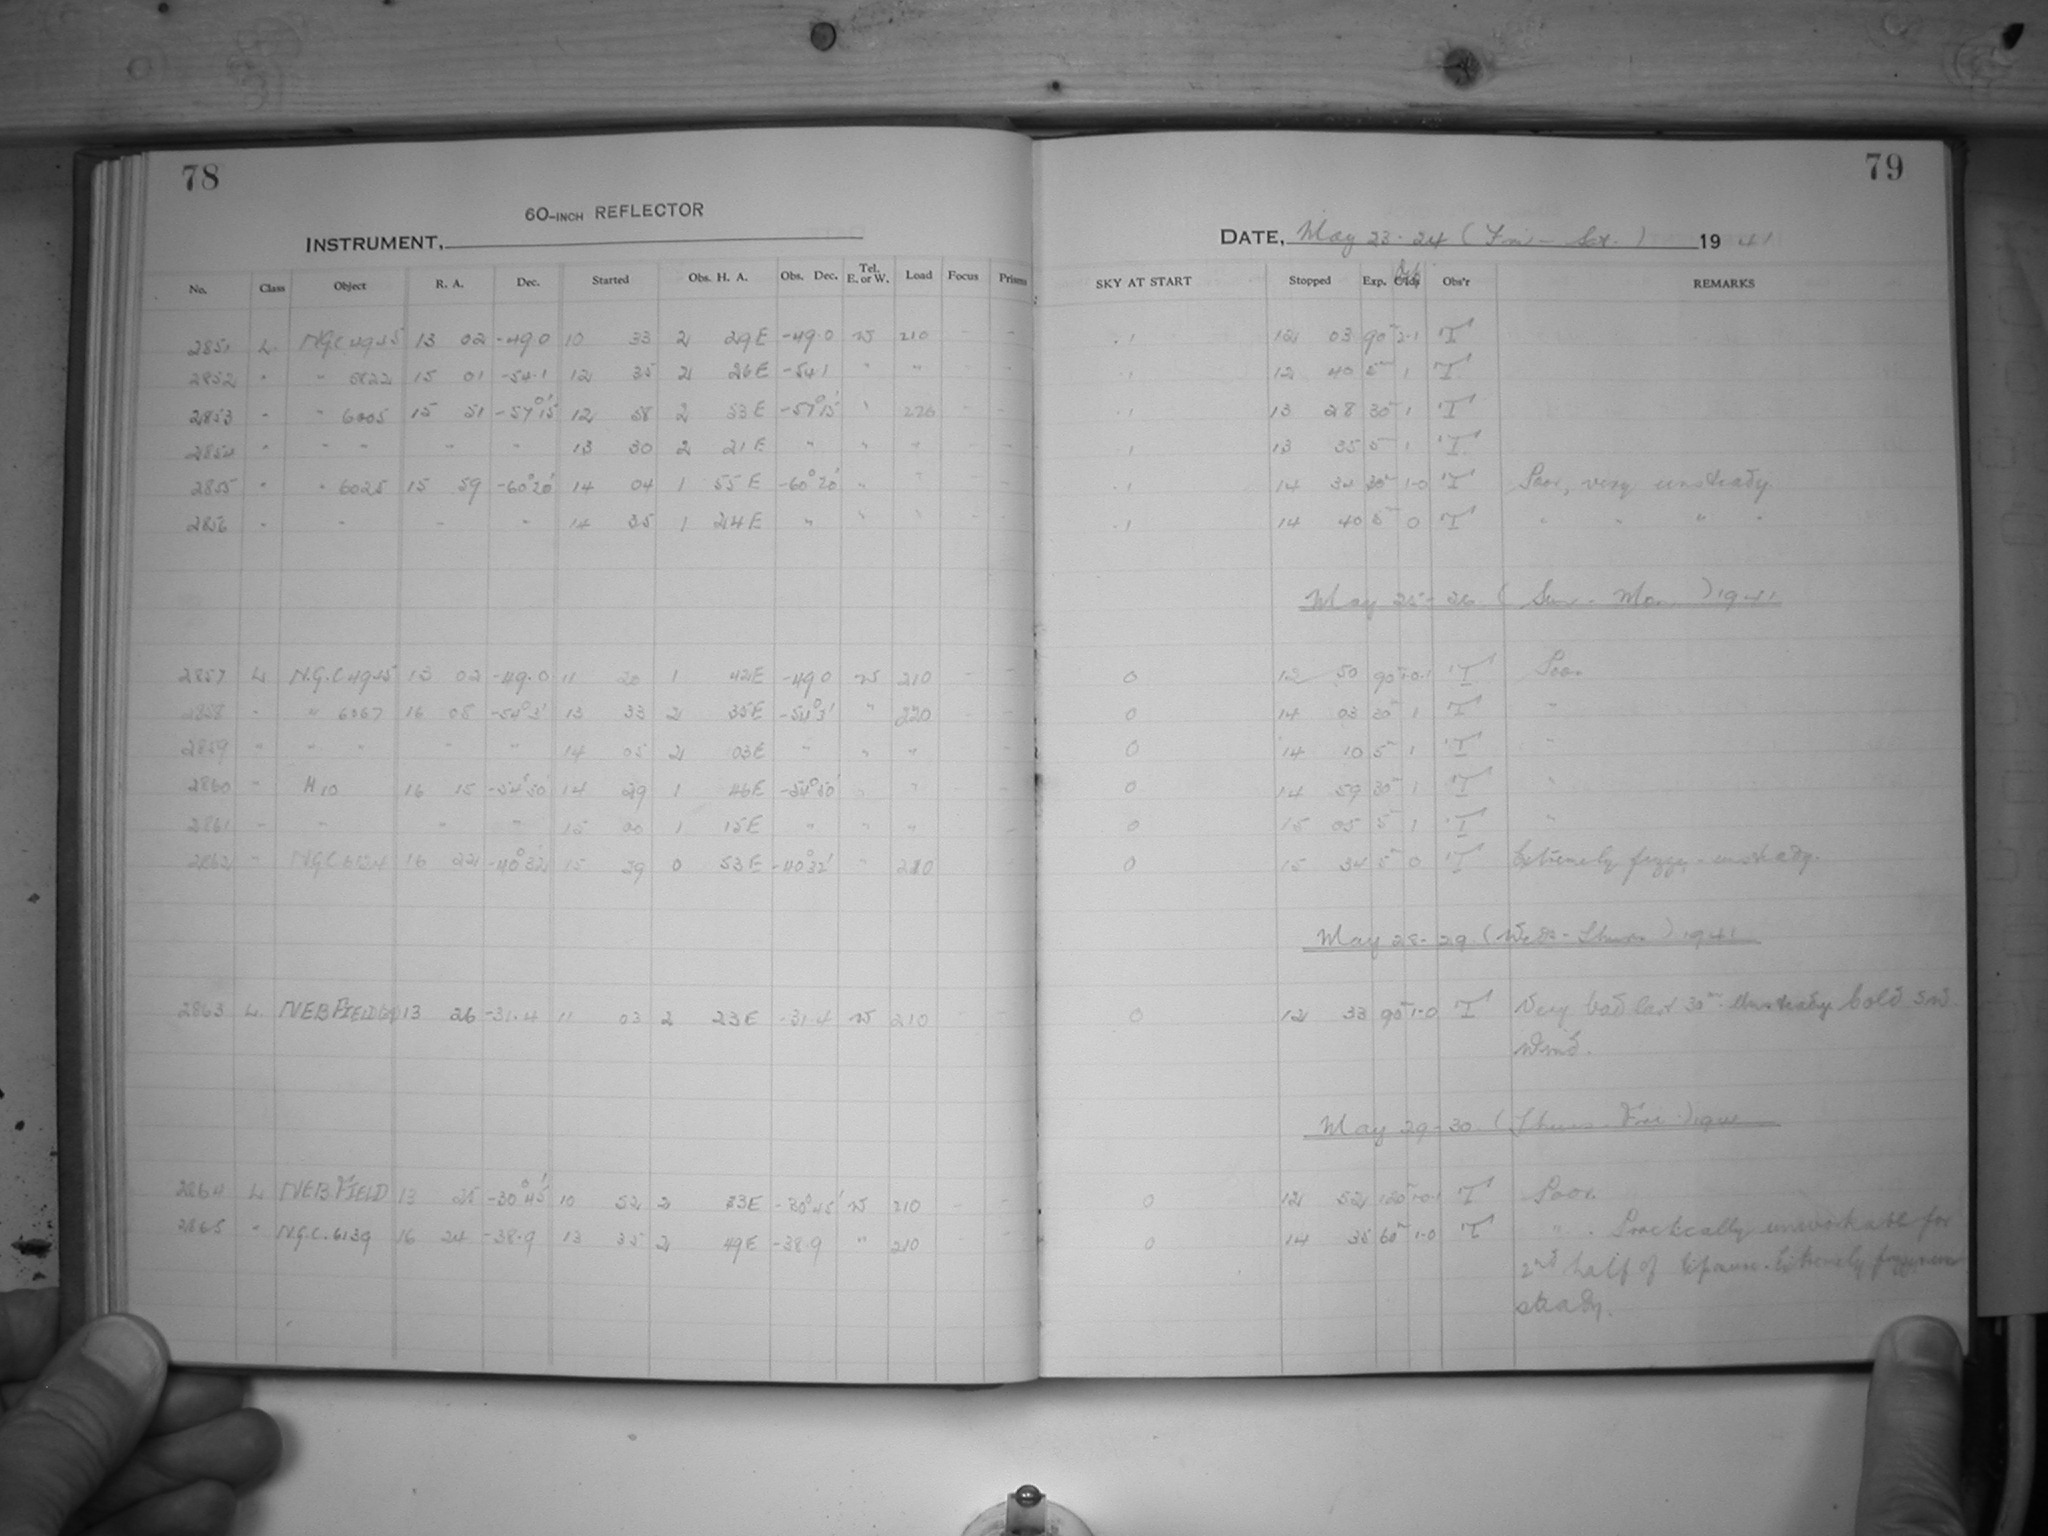 78
79
60-INCH REFLECTOR
INSTRUMENT,
DATE, May 23-24 (Fri - Sat.) 1941
No. Class Object R. A. Dec. Started Obs. H. A. Obs. Dec. Tel. E. or W. Load Focus Prisms SKY AT START Stopped Exp. Obs'r REMARKS
2851 L NGC 4945 13 02 -49.0 10 33 2 29E -49.0 W 210 - - .1 12 03 90m 2-1 T
2852 " " 5822 15 01 -54.1 12 35 2 26E -54.1 " " - - .1 12 40 5m 1 T
2853 " " 6005 15 51 -57°15' 12 58 2 53E -57°15' " 220 - - .1 13 28 30m 1 T
2854 " " " " " 13 30 2 21E " " " - - .1 13 35 5m 1 T
2855 " " 6025 15 59 -60°20' 14 04 1 55E -60°20' " " - - .1 14 34 30m 1-0 T Poor, very unsteady.
2856 " " " " 14 35 1 24E " " " - - .1 14 40 5m 0 T " " " "
May 25-26 (Sun - Mon.) 1941
2857 L N.G.C 4945 13 02 -49.0 11 20 1 42E -49.0 W 210 - - 0 12 50 90m 1-0.1 T Poor.
2858 " " 6067 16 08 -54°3' 13 33 2 35E -54°3' " 220 - - 0 14 03 30m 1 T "
2859 " " " " " 14 05 2 03E " " " - - 0 14 10 5m 1 T "
2860 " H10 16 15 -54°50' 14 29 1 46E -54°50' " " - - 0 14 59 30m 1 T "
2861 " " " " 15 00 1 15E " " " - - 0 15 05 5m 1 T "
2862 " NGC 6124 16 22 -40°32' 15 29 0 53E -40°32' " 210 - - 0 15 34 5m 0 T Extremely fuzzy - unsteady.
May 28-29 (Wed - Thurs) 1941
2863 L NEB FIELD 13 26 -31.4 11 03 2 23E -31.4 W 210 - - 0 12 33 90m 1-0 T Very bad last 30m. Unsteady. Cold
Wind.
May 29-30 (Thurs - Fri) 1941
2864 L NEB FIELD 13 25 -30°45' 10 52 2 33E -30°45' W 210 - - 0 12 52 120m 1-0.1 T Poor.
2865 " N.G.C. 6139 16 24 -38.9 13 35 2 49E -38.9 " 210 - - 0 14 35 60m 1-0 T " . Practically unworkable for
2nd half of Exposure. Extremely fuzzy, un
steady.